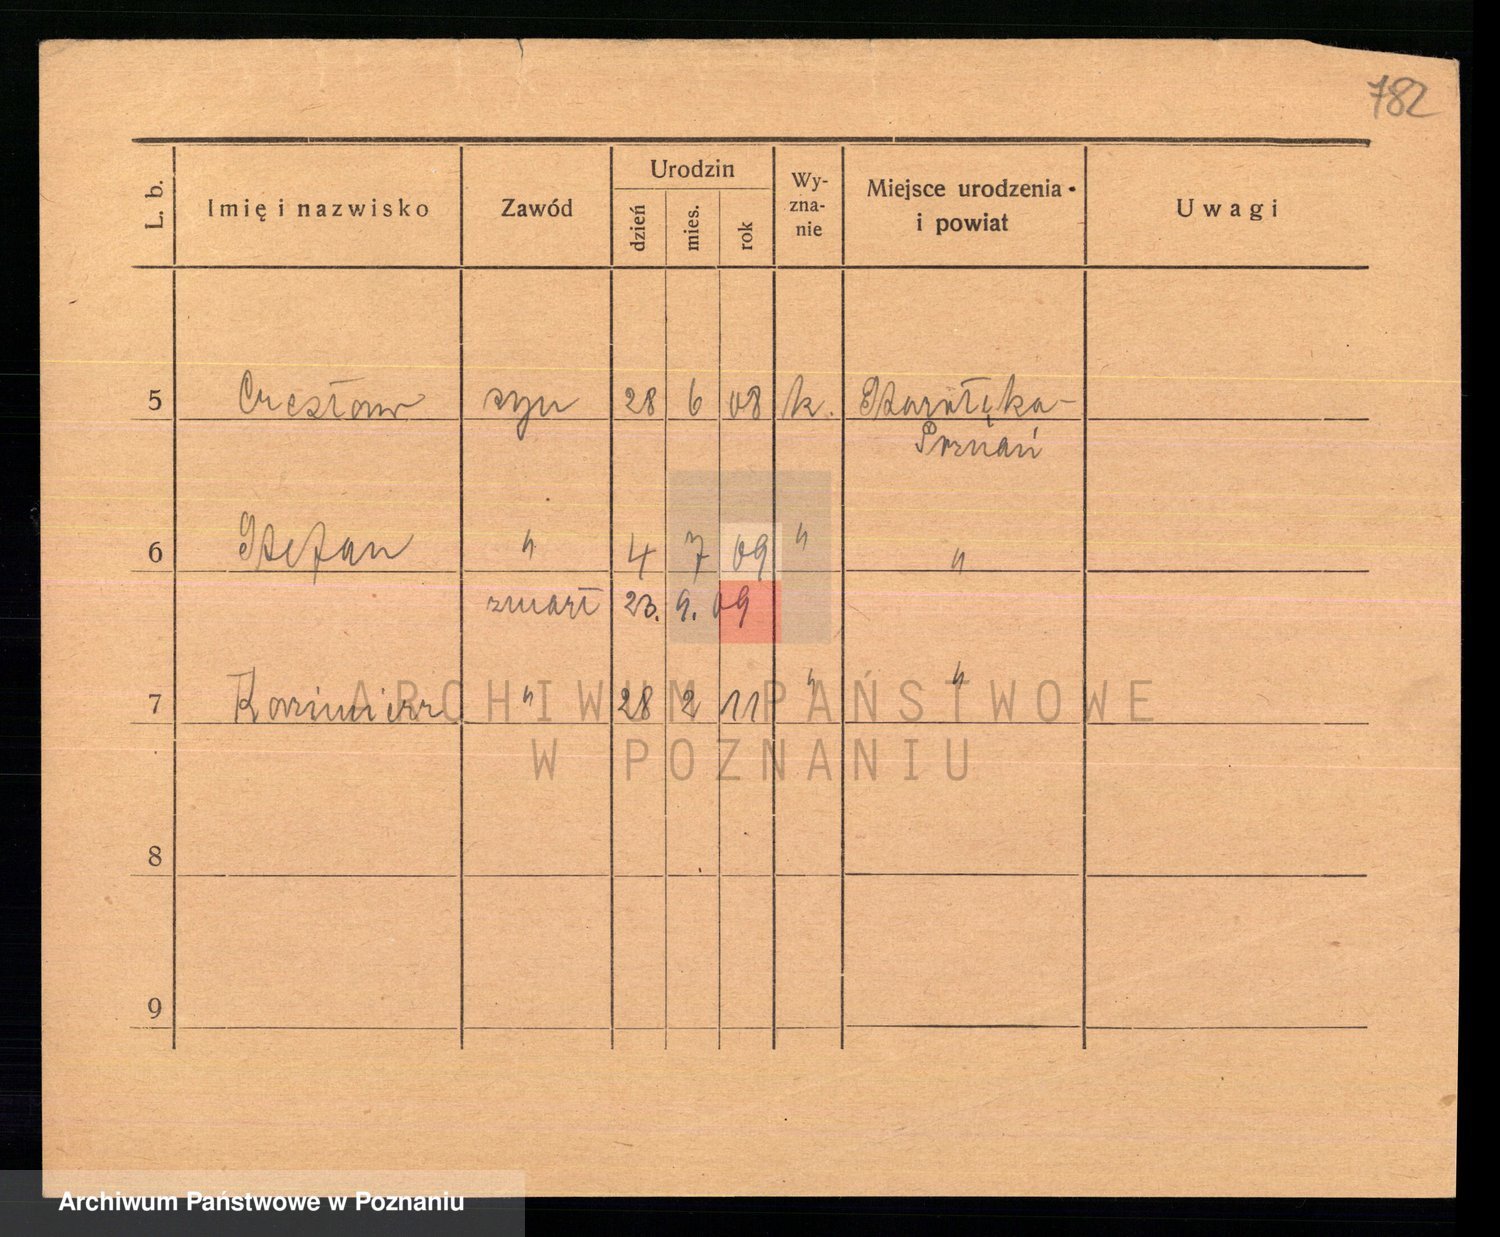 782
L. b.
Imię i nazwisko
Zawód
Urodzin
dzień
mies.
rok
Wy-
zna-
nie
Miejsce urodzenia
i powiat
Uwagi
5 Czesław syn 28 6 08 k. Starołęka-
Poznań
6 Stefan " 4 7 09 " "
zmarł 23. 9. 09
7 Kazimierz " 28 2 11 " "
8
9
ARCHIWUM PAŃSTWOWE
W POZNANIU
Archiwum Państwowe w Poznaniu